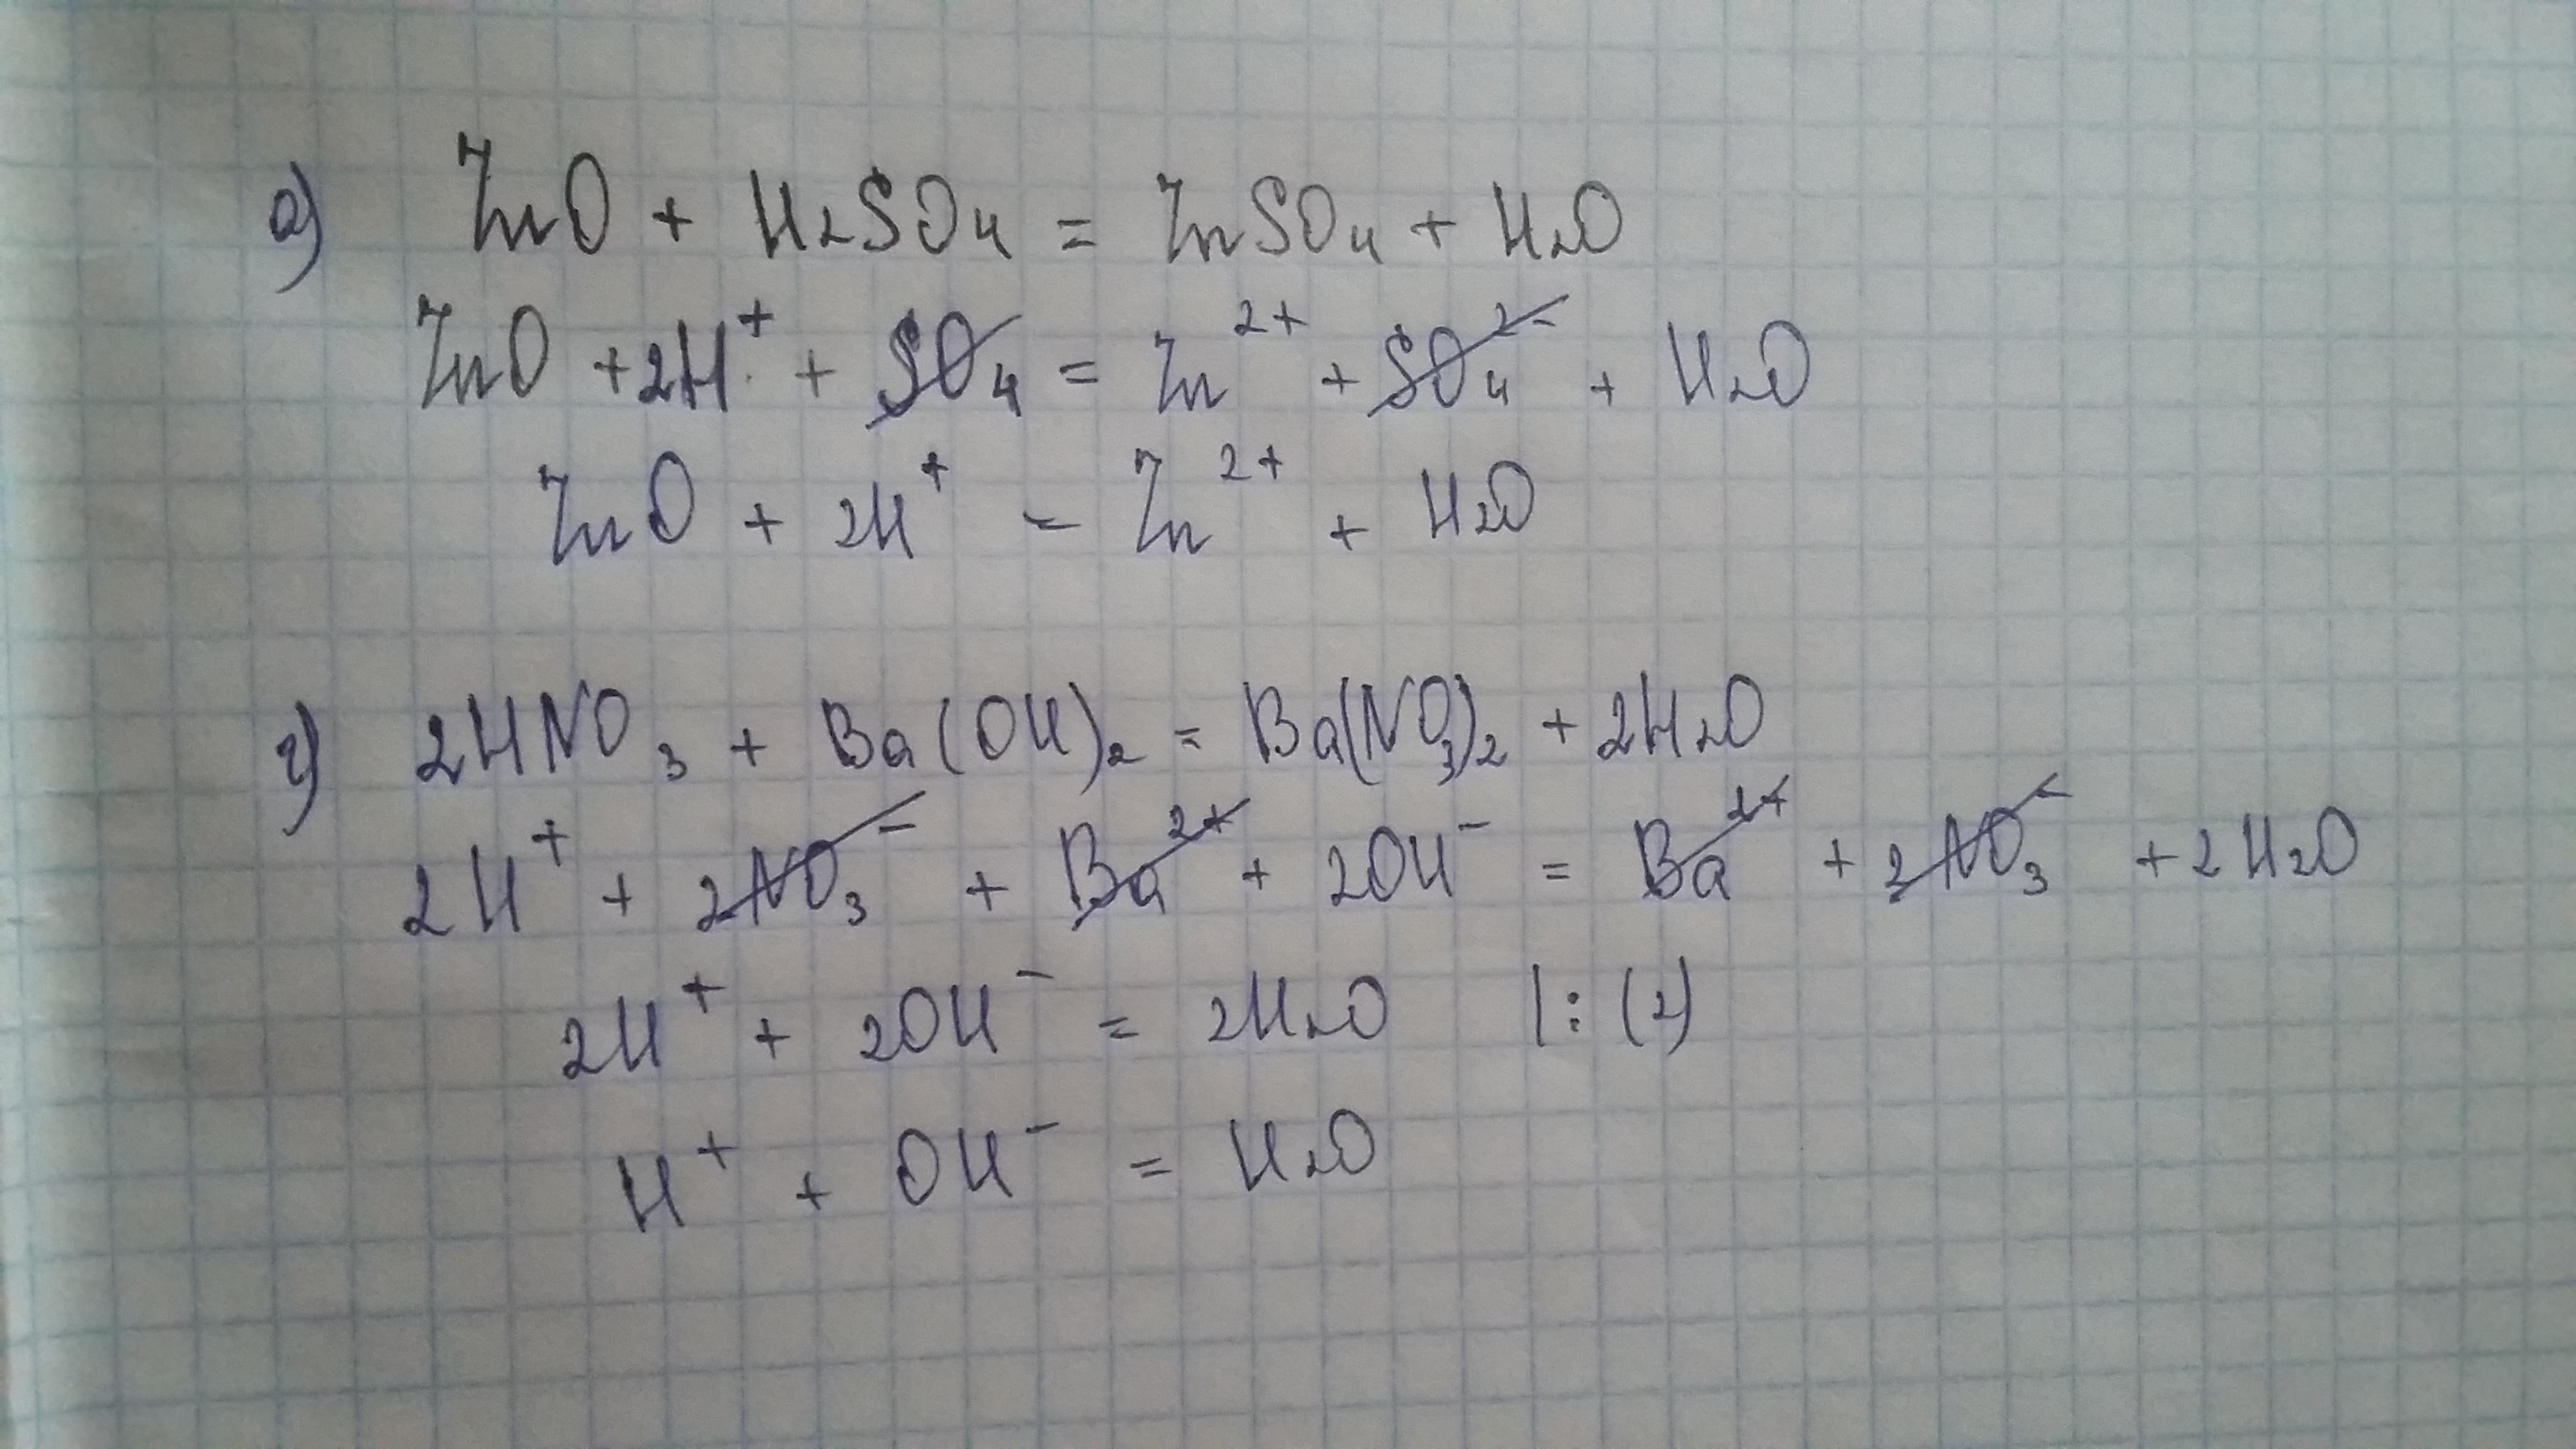 а) ZnO + H₂SO₄ = ZnSO₄ + H₂O
ZnO + 2H⁺ + SO₄ = Zn²⁺ + SO₄²⁻ + H₂O
ZnO + 2H⁺ = Zn²⁺ + H₂O
г) 2HNO₃ + Ba(OH)₂ = Ba(NO₃)₂ + 2H₂O
2H⁺ + 2NO₃⁻ + Ba²⁺ + 2OH⁻ = Ba²⁺ + 2NO₃⁻ + 2H₂O
2H⁺ + 2OH⁻ = 2H₂O |: (2)
H⁺ + OH⁻ = H₂O